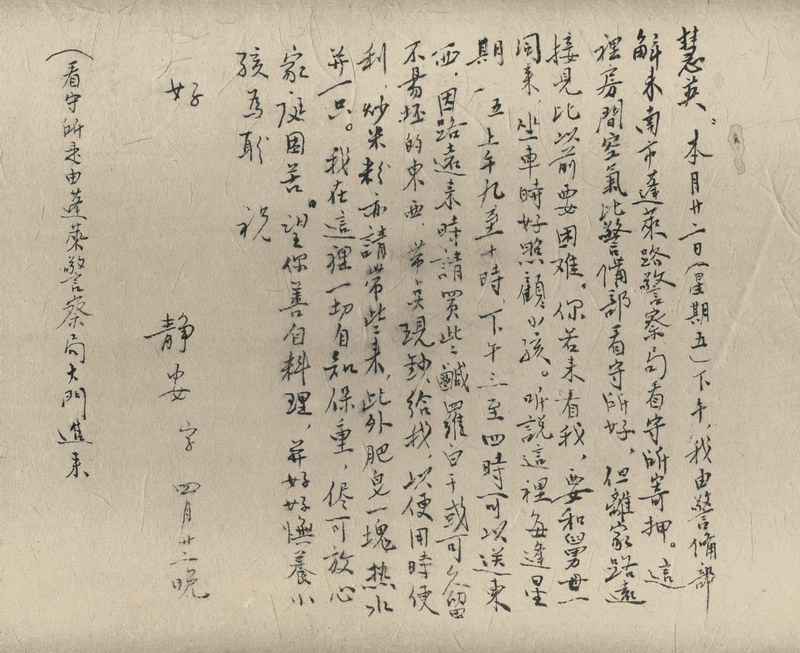 慧英。本月廿二日(星期五)下午,我由警備部
解来南市蓬萊路警察局看守所寄押。這
裡房間空氣比警備部看守所好,但離家路遠
接見比以前要困难。你若来看我,要和舅母
同来,坐車時好照顧小孩。听說這裡每逢星
期,五上午九至十時下午三至四時可以送東
西,因路遠来時請買些鹹羅白干或可久留
不易坯的東西,带点現鈔給我,以便用時便
利,炒米粉亦請带些来,此外肥皂一塊热水
并一只。我在這裡一切自知保重,侭可放心
家庭困苦。望你善自料理,并好好撫養小
孩為盼 祝
好
静安字 四月廿二晚
(看守所是由蓬萊警察局大門進来